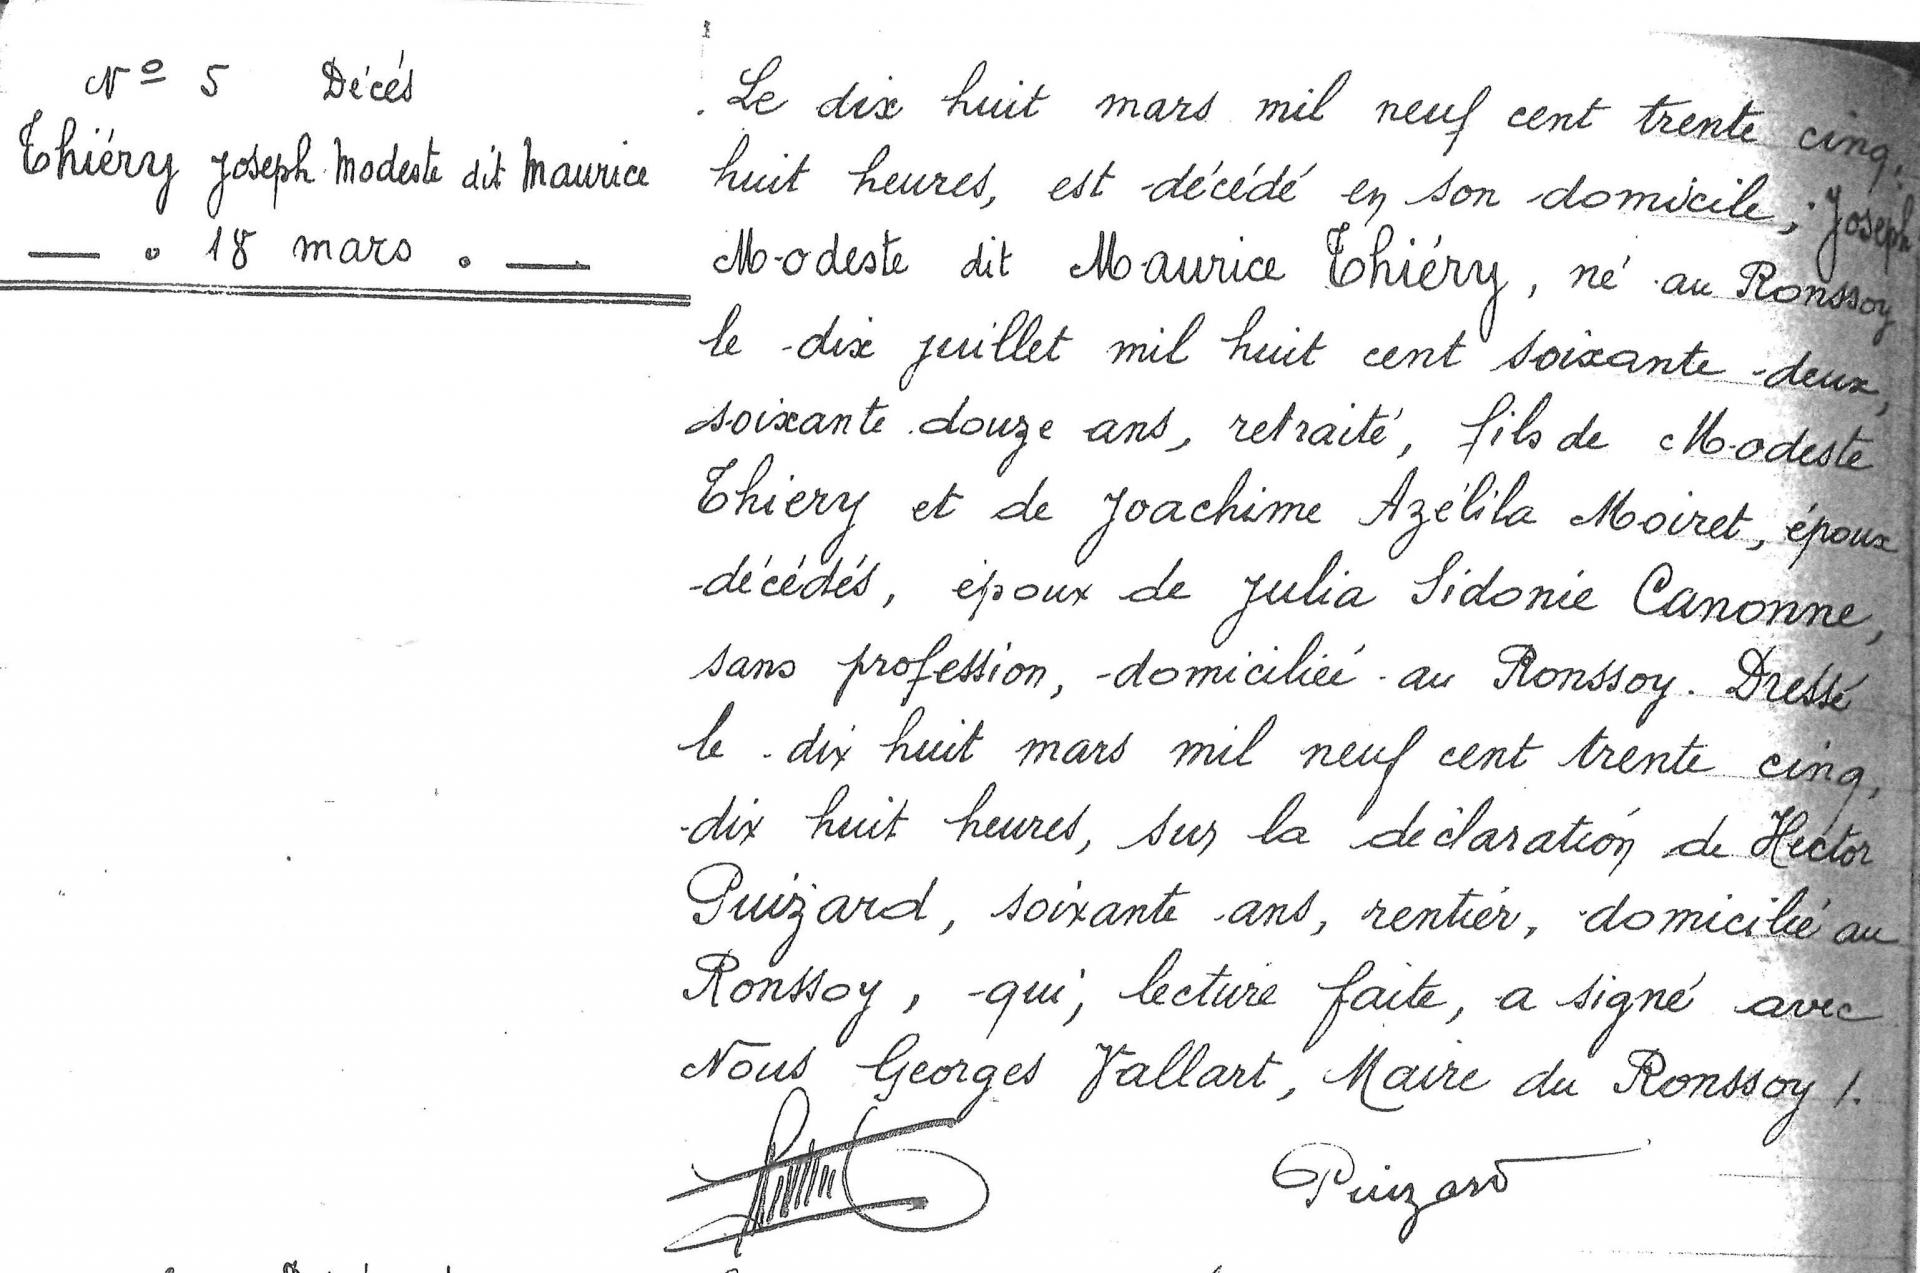 Nº 5 Décés
Thiéry Joseph Modeste dit Maurice
— . 18 mars . —
Le dix huit mars mil neuf cent trente cinq,
huit heures, est décédé en son domicile, Joseph
Modeste dit Maurice Thiéry, né au Ronssoy
le dix juillet mil huit cent soixante deux,
soixante douze ans, retraité, fils de Modeste
Thiery et de Joachime Azélila Moiret, époux
décédés, époux de Julia Sidonie Canonne,
sans profession, domiciliée au Ronssoy. Dressé
le dix huit mars mil neuf cent trente cinq,
dix huit heures, sur la déclaration de Hector
Puizard, soixante ans, rentier, domicilié au
Ronssoy, qui, lecture faite, a signé avec
Nous Georges Vallart, Maire du Ronssoy /.
Puizard